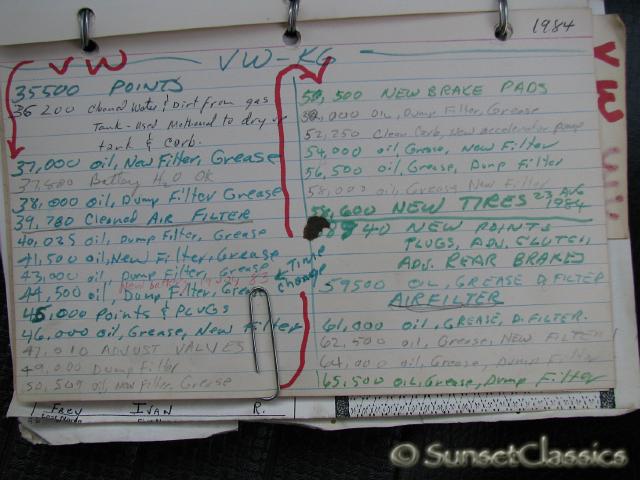 1984
VW
VW-KG
35500 POINTS
36200 Cleaned Water & Dirt from gas
Tank - Used Methanol to dry up
tank & Carb.
37,000 oil, New Filter, Grease
37,800 Battery H2O OK
38,000 oil, Dump Filter Grease
39,780 Cleaned AIR FILTER
40,035 oil, Dump Filter, Grease
41,500 oil, New Filter, Grease
43,000 oil, Dump Filter, Grease
New battery
44,500 oil, Dump Filter, Grease
← Time
change
45,000 Points & PLUGS
46,000 oil, Grease, New Filter
47,010 ADJUST VALVES
49,000 Dump Filter
50,509 oil, New Filter, Grease
500 NEW BRAKE PADS
000 Oil, Dump Filter, Grease
52,250 Clean Carb, New accelerator pump
54,000 oil, Grease, New Filter
56,500 oil, Grease, Dump Filter
58,000 oil, Grease New Filter
58,600 NEW TIRES 23 AUG
1984
940 NEW POINTS
PLUGS, ADJ. CLUTCH,
ADJ. REAR BRAKES
59500 OIL, GREASE D. FILTER
AIR FILTER
61,000 oil, GREASE, D. FILTER
62,500 oil, Grease, NEW FILTER
64,000 oil, Grease, Dump Filter
65,500 oil, Grease, Dump Filter
FREY IVAN R.
© SunsetClassics